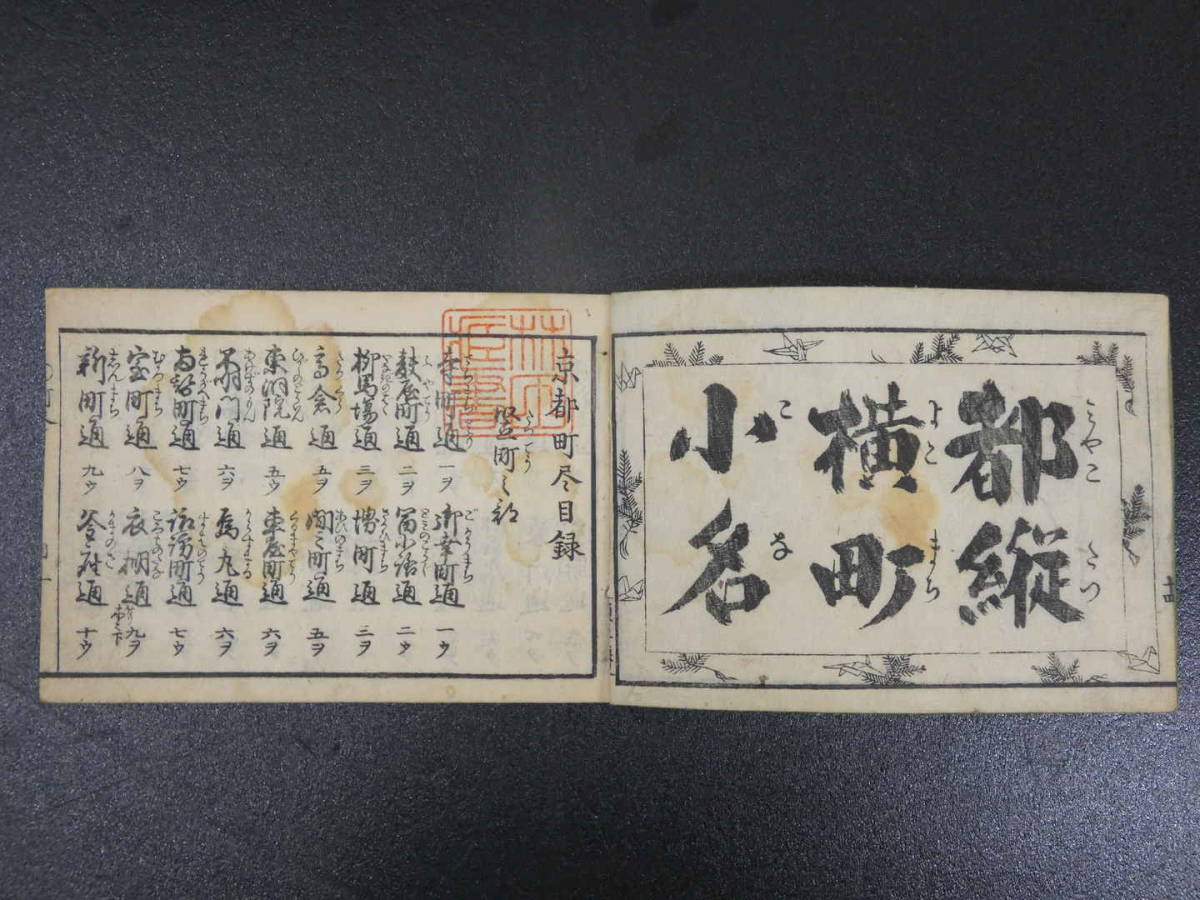 都縦
横町
小名
京都町尽目録
竪町之部
寺町通 一ヲ 御幸町通 一ウ
麩屋町通 二ヲ 冨小路通 二ウ
柳馬場通 三ヲ 堺町通 三ヲ
高倉通 五ヲ 間之町通 五ヲ
東洞院通 五ウ 車屋町通 六ヲ
不明門通 六ヲ 烏丸通 六ヲ
両替町通 七ウ 諏訪町通 七ウ
室町通 八ヲ 衣棚通 九ヲ
新町通 九ウ 釜座通 十ウ